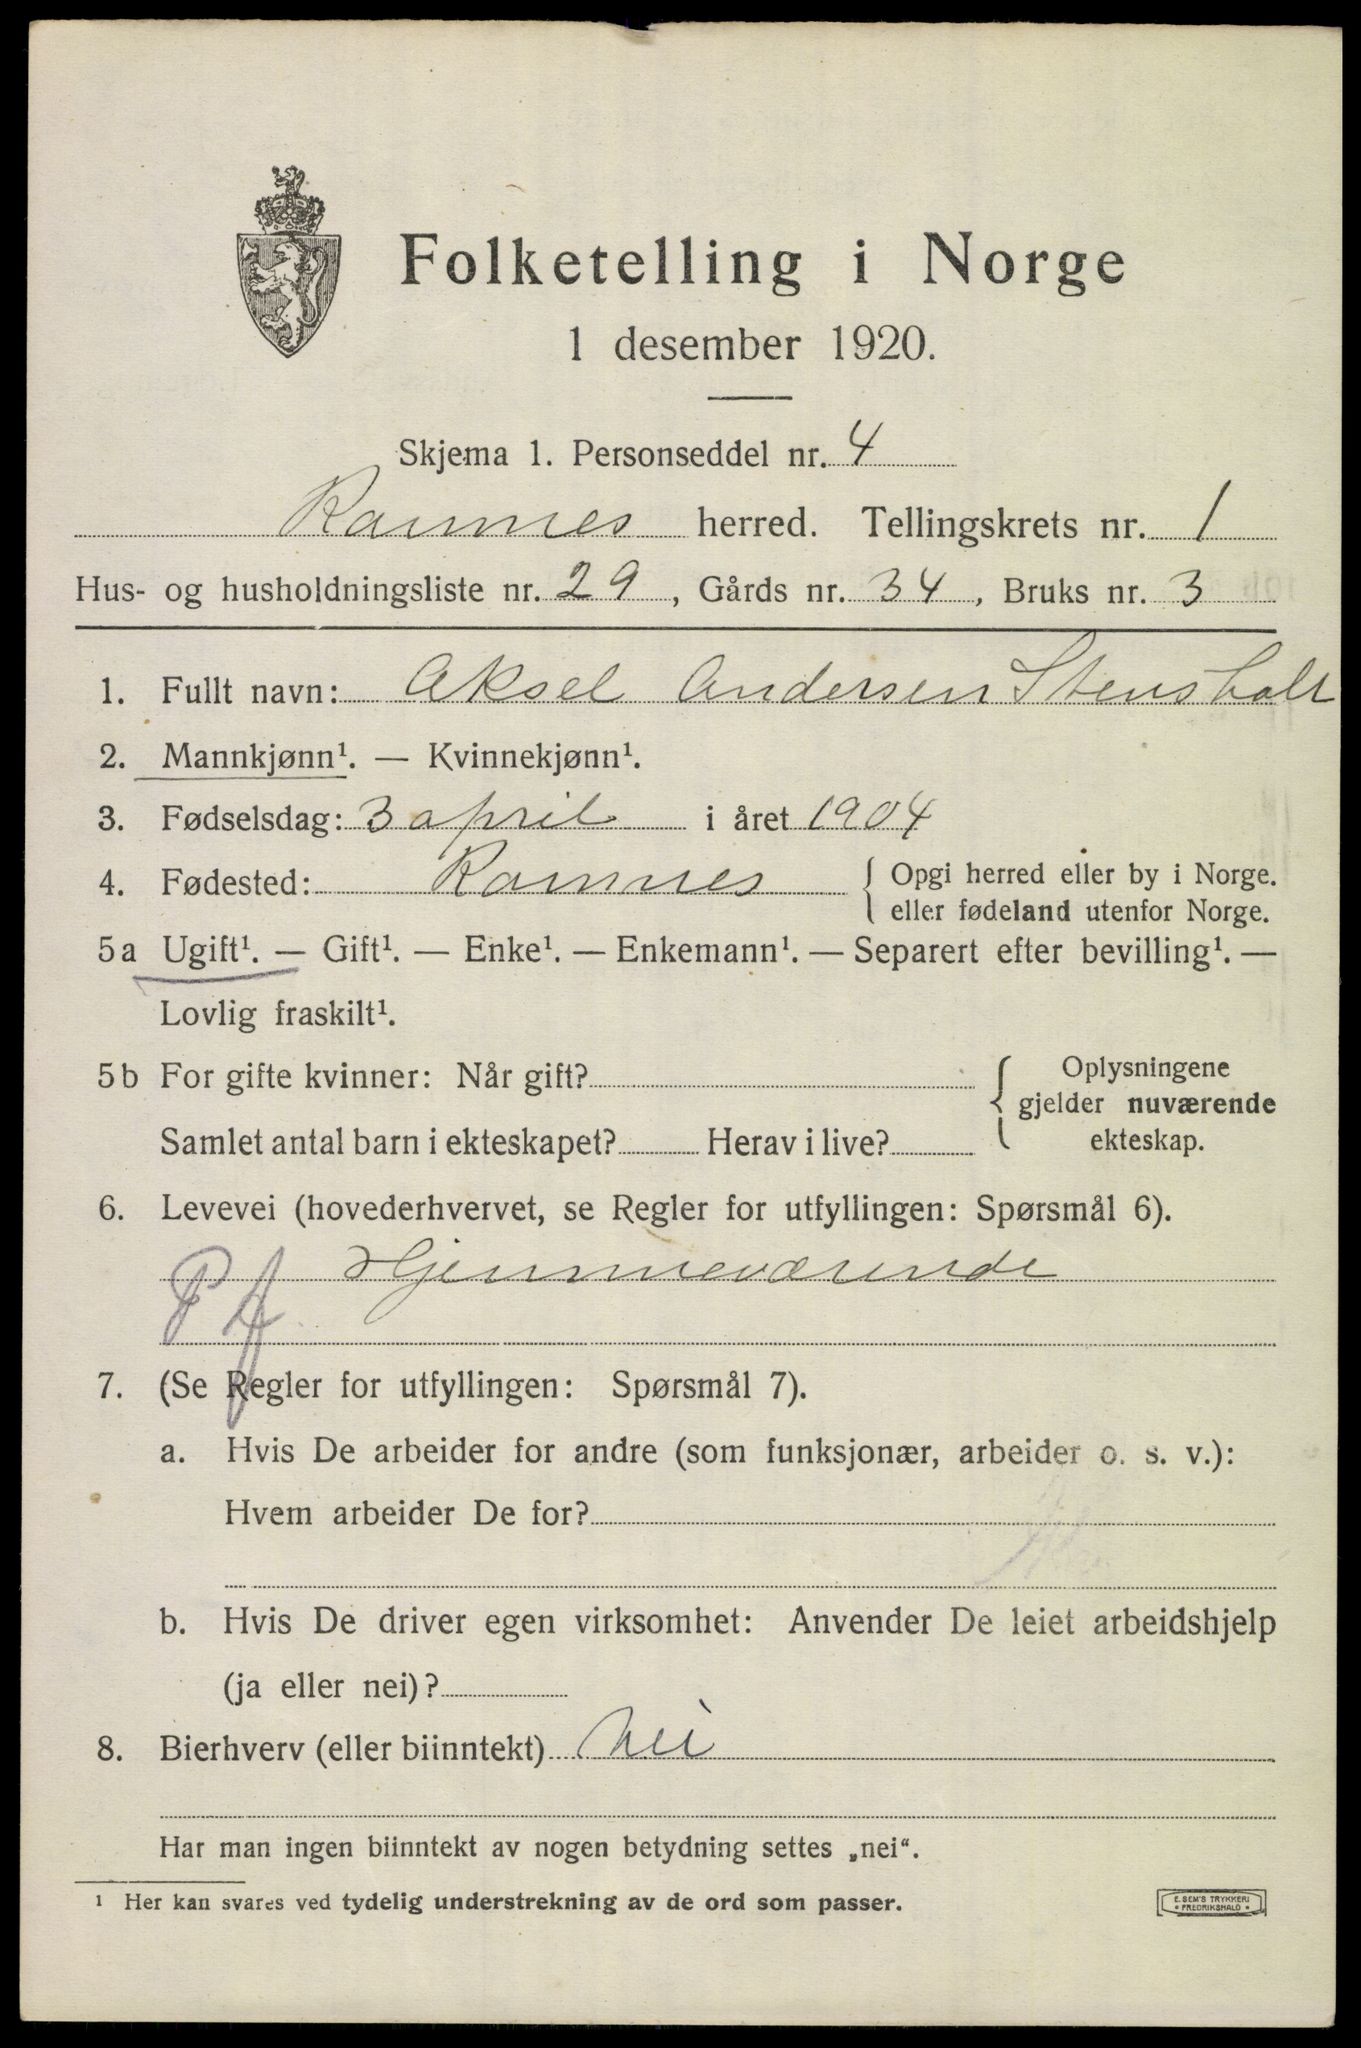 Folketelling i Norge
1 desember 1920.
Skjema 1. Personseddel nr. 4
Ramnes herred. Tellingskrets nr. 1
Hus- og husholdningsliste nr. 29, Gårds nr. 34, Bruks nr. 3
1. Fullt navn: Aksel Andersen Stensholt
2. Mannkjønn¹. — Kvinnekjønn¹.
3. Fødselsdag: 3 april i året 1904
4. Fødested: Ramnes { Opgi herred eller by i Norge.
eller fødeland utenfor Norge.
5a Ugift¹. — Gift¹. — Enke¹. — Enkemann¹. — Separert efter bevilling¹. —
Lovlig fraskilt¹.
5b For gifte kvinner: Når gift?
Samlet antal barn i ekteskapet? Herav i live?
Oplysningene
gjelder nuværende
ekteskap.
6. Levevei (hovederhvervet, se Regler for utfyllingen: Spørsmål 6).
Hjemmeværende
7. (Se Regler for utfyllingen: Spørsmål 7).
a. Hvis De arbeider for andre (som funksjonær, arbeider o. s. v.):
Hvem arbeider De for?
b. Hvis De driver egen virksomhet: Anvender De leiet arbeidshjelp
(ja eller nei)?
8. Bierhverv (eller biinntekt) Nei
Har man ingen biinntekt av nogen betydning settes „nei“.
¹ Her kan svares ved tydelig understrekning av de ord som passer.
E. SEM'S TRYKKERI
FREDRIKSHALD